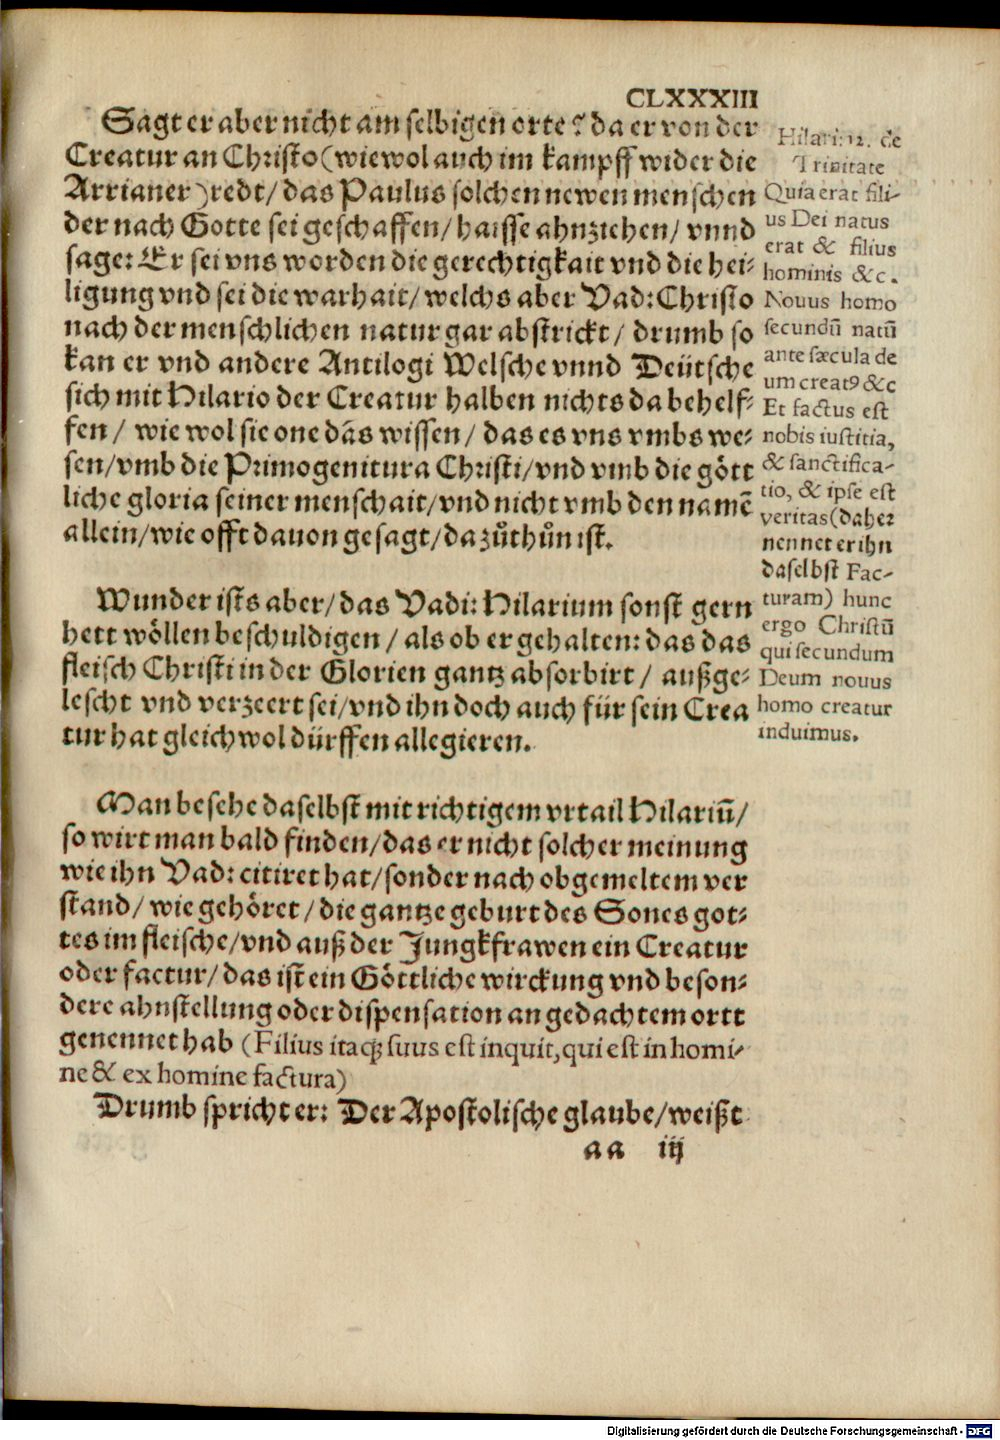 CLXXXIII
Sagt er aber nicht am selbigen orte? da er von der
Creatur an Christo (wiewol auch im kampff wider die
Arrianer) redt/ das Paulus solchen newen menschen
der nach Gotte sei geschaffen/ haisse ahnziehen/ vnnd
sage: Er sei vns worden die gerechtigkait vnd die hei-
ligung vnd sei die warhait/ welchs aber Vad: Christo
nach der menschlichen natur gar abstrickt/ drumb so
kan er vnd andere Antilogi Welsche vnnd Deütsche
sich mit Hilario der Creatur halben nichts da behelf-
fen/ wie wol sie one dãs wissen/ das es vns vmbs we-
sen/ vmb die Primogenitura Christi/ vnd vmb die gött
liche gloria seiner menschait/ vnd nicht vmb den namẽ
allein/ wie offt dauon gesagt/ da zůthůn ist.
Wunder ists aber/ das Vadi: Hilarium sonst gern
hett wöllen beschuldigen/ als ob er gehalten: das das
fleisch Christi in der Glorien gantz absorbirt/ außge-
lescht vnd verzeert sei/ vnd ihn doch auch für sein Crea
tur hat gleichwol dürffen allegieren.
Man besehe daselbst mit richtigem vrtail Hilariũ/
so wirt man bald finden/ das er nicht solcher meinung
wie ihn Vad: citiret hat/ sonder nach obgemeltem ver
stand/ wie gehöret/ die gantze geburt des Sones got-
tes im fleische/ vnd auß der Jungkfrawen ein Creatur
oder factur/ das ist ein Göttliche wirckung vnd beson-
dere ahnstellung oder dispensation an gedachtem ortt
genennet hab (Filius itaq; suus est inquit, qui est in homi-
ne & ex homine factura)
Drumb spricht er: Der Apostolische glaube/ weißt
aa iij
Hilari: 12. de
Trinitate
Quia erat fili-
us Dei natus
erat & filius
hominis &c.
Nouus homo
secundũ natũ
ante sæcula de
um creatꝰ &c
Et factus est
nobis iustitia,
& sanctifica-
tio, & ipse est
veritas (daher
nennet er ihn
daselbst Fac-
turam) hunc
ergo Christũ
qui secundum
Deum nouus
homo creatur
induimus.
Digitalisierung gefördert durch die Deutsche Forschungsgemeinschaft - DFG